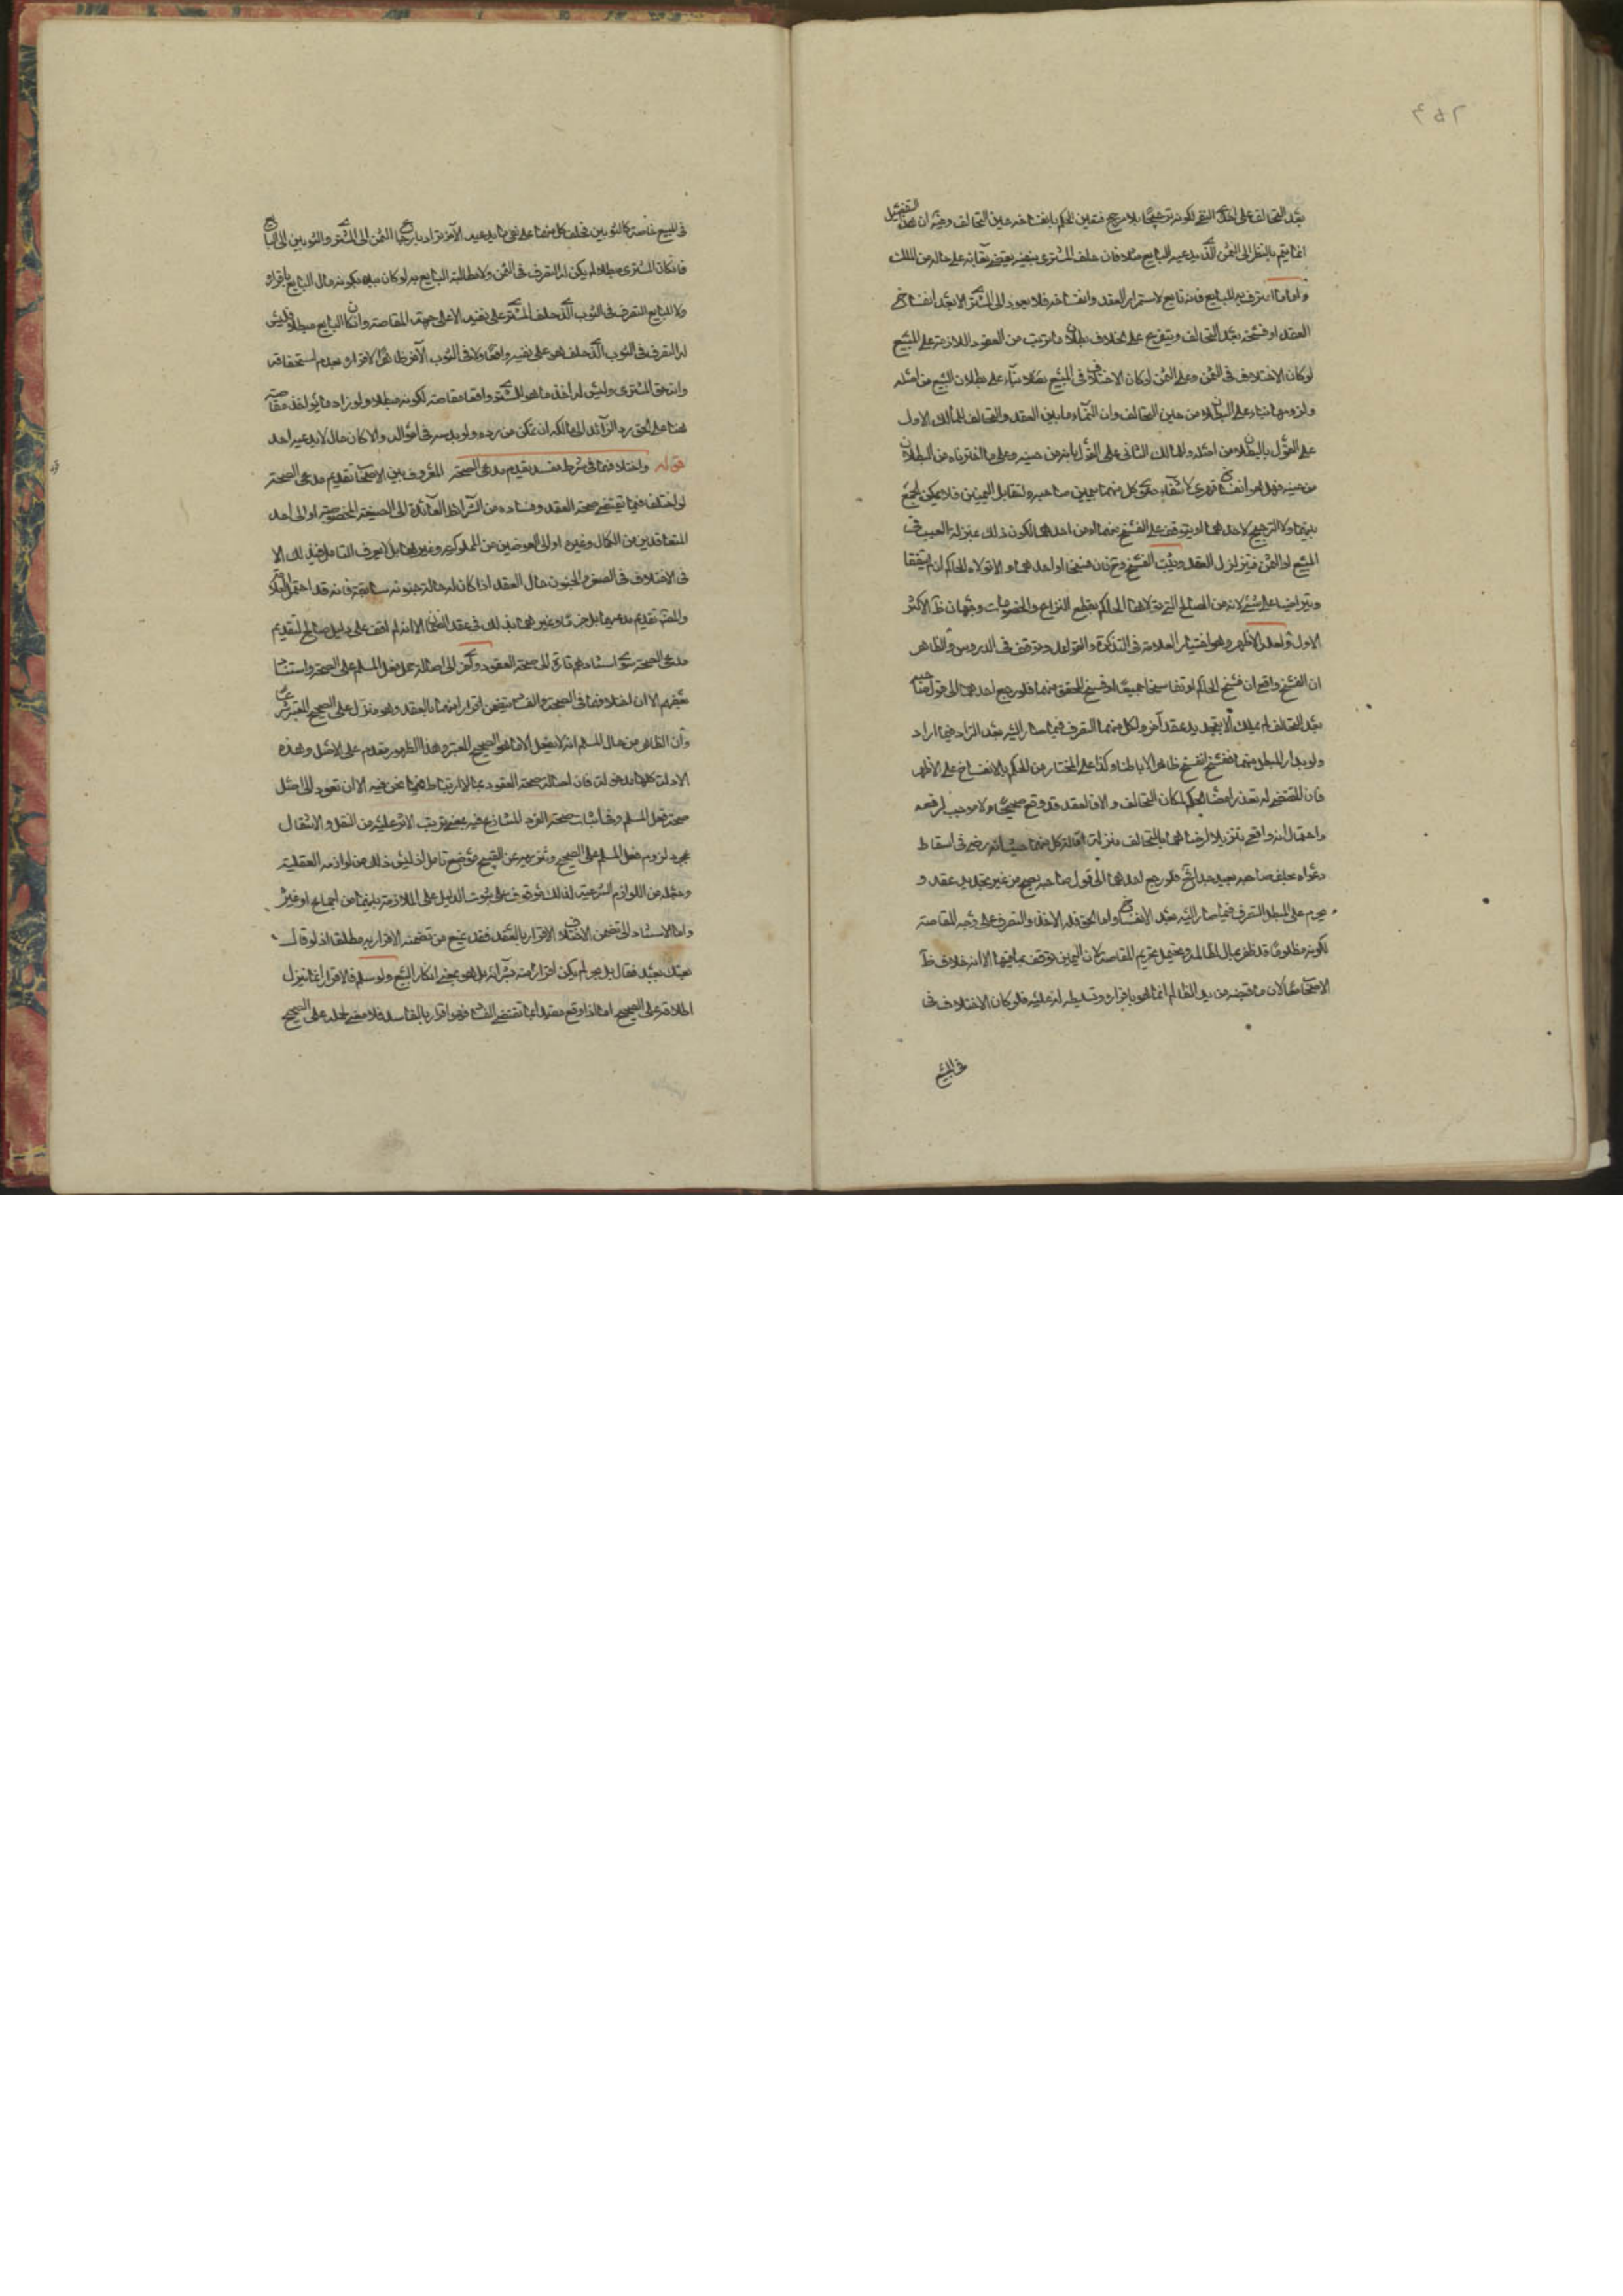 ۴۵۲
بعد التحالف على احدى التهم لكونه ترجيحا بلا مرجح فتعين الحكم بانفساخه حين التحالف وفيه ان هذا التفصيل
انما يتم بالنظر الى الثمن الذى يدعيه البايع مثلا فان حلف المشترى بنفيه يقتضى بقائه على حاله من الملك
واما ما اعترف به البايع فانه تابع لاستمرار العقد وانفساخه فلا يعود الى المشترى الا بعد انفساخ
العقد او فسخه بعد التحالف ويتفرع على الخلاف بطلان ما ترتب من العقود اللازمة على المبيع
لو كان الاختلاف فى الثمن وعلى الثمن لو كان الاختلاف فى المبيع مثلا بناء على بطلان البيع من اصله
ولزومها بناء على البطلان من حين التحالف وان النماء ما بين العقد والتحالف للمالك الاول
على القول بالبطلان من اصله وللمالك الثانى على القول بانه من حينه وعلى ما اخترناه من البطلان
من حينه فهل هو انفساخ قهرى لانتفاء دعوى كل منهما بيمين صاحبه ولتقابل اليمينين فلا يمكن الجمع
بينهما ولا الترجيح لاحدهما او يتوقف على الفسخ منهما او من احدهما لكون ذلك بمنزلة العيب فى
المبيع او الثمن فيتزلزل العقد ويثبت الفسخ وح فان فسخا او احدهما والا تولاه الحاكم ان لم يتفقا
ويتراضيا على شئ لانه من المصالح التى يتولاها الحاكم بقطع النزاع والخصومات وجهان ظ الاكثر
الاول ولعله الاظهر وهو اختيار العلامة فى التذكرة والقواعد وتوقف فى الدروس والظاهر
ان الفسخ واقع ان فسخ الحاكم او تفاسخا جميعا او فسخ المحق منهما فلو رجع احدهما الى قول صاحبه
بعد التحالف لم يملك الا بتجديد عقد آخر ولكل منهما التصرف فيما صار اليه بعد التراد فيما اراد
ولو بدار المبطل منهما ففسخ انفسخ ظاهرا لا باطنا وكذا على المختار من الحكم بالانفساخ على الاظهر
فان المقتضى له تعذر امضاء الحكم لمكان التحالف والا فالعقد قد وقع صحيحا ولا موجب لرفعه
واحتمال انه واقعى بتنزيلا لرضاهما بالتحالف منزلة اقالة كل منهما حيث انه رضى فى اسقاط
دعواه بحلف صاحبه بعيد جدا فلو رجع احدهما الى قول صاحبه يصح من غير تجديد عقد و
يحرم على المبطل التصرف فيما صار اليه بعد الانفساخ واما المحق فله الاخذ والتصرف على وجه المقاصة
لكونه مظلوما قد ظفر بمال الظالم له ويحتمل تحريم المقاصة لان اليمين توقف بما فيها الا انه خلاف ظ
الاصحاب هنا لان ما قبضه من يد الظالم انما هو باقراره وتسليطه له عليه فلو كان الاختلاف فى
فى المبيع
فى المبيع خاصة كالثوبين فحلف كل منهما على نفى ما يدعيه الآخر ترادا يرجع الثمن الى المشترى والثوبين الى البايع
فان كان المشترى مبطلا لم يكن له التصرف فى الثمن ولا مطالبة البايع به لو كان بيده لكونه مال البايع باقراره
ولا للبايع التصرف فى الثوب الذى حلف المشترى على نفيه الا على جهة المقاصة وان كان البايع مبطلا فليس
له التصرف فى الثوب الذى حلف هو على نفيه واقعا ولا فى الثوب الآخر ظاهرا لاقراره بعدم استحقاقه
وانه حق المشترى وليس له اخذ ما هو للمشترى واقعا مقاصة لكونه مبطلا ولو زاد ما يؤخذ مقاصة
هنا على الحق رد الزائد الى مالكه ان تمكن من رده ولو بدسه فى امواله والا كان مالا لا يدعيه احد
قوله واختلافهما فى شرط مفسد يقدم مدعى الصحة المعروف بين الاصحاب تقديم مدعى الصحة
لو اختلف فيما يقتضى صحة العقد وفساده من الشرائط العائدة الى الصيغة المخصوصة او الى احد
المتعاقدين من الكمال وغيره او الى العوضين من المملوكية وغيرها بل لا نعرف التامل فى ذلك الا
فى الاختلاف فى الصغر والجنون حال العقد اذا كان له حالة جنونه سابقة فانه قد احتمل
والمقتضى تقديم مدعيهما بل جزما وغيرهما بذلك فى عقد الضمان الا انه لم اقف على دليل صالح لتقديم
مدعى الصحة سوى استنادهم تارة الى صحة العقود واخرى الى اصالة حمل فعل المسلم على الصحة واستناد
بعضهم الا ان اختلافهما فى الصحة والفساد يتضمن اقرارا منهما بالعقد وهو منزل على الصحيح المعتبر شرعا
وان الظاهر من حال المسلم انه لا يفعل الا ما هو الصحيح المعتبر وهذا الظهور مقدم على الاصل وهذه
الادلة كلها مدخولة فان اصالة صحة العقود مما لا ارتباط فيما نحن فيه الا ان تعود الى اصل
صحة فعل المسلم وفى اثبات صحة الفرد المتنازع فيه بمعنى ترتب الاثر عليه من النقل والانتقال
بمجرد لزوم فعل المسلم على الصحيح وتنزيهه عن القبيح موضع تامل اذ ليس ذلك من لوازمه العقلية
وجعله من اللوازم الشرعية لذلك موقوف على ثبوت الدليل على الملازمة بينهما من اجماع او غيره
واما الاستناد الى تضمن الاختلاف الاقرار بالعقد فقد يمنع من تضمنه الاقرار به مطلقا اذ لو قال
بعتك بعبد فقال بل بحر لم يكن اقرارا منه بشرائه بل هو بمعنى انكار البيع ولو سلم فالاقرار انما ينزل
اطلاقه على الصحيح اما اذا وقع مقيدا بما يقتضى الفساد فهو اقرار بالفاسد فلا معنى لحمله على الصحيح